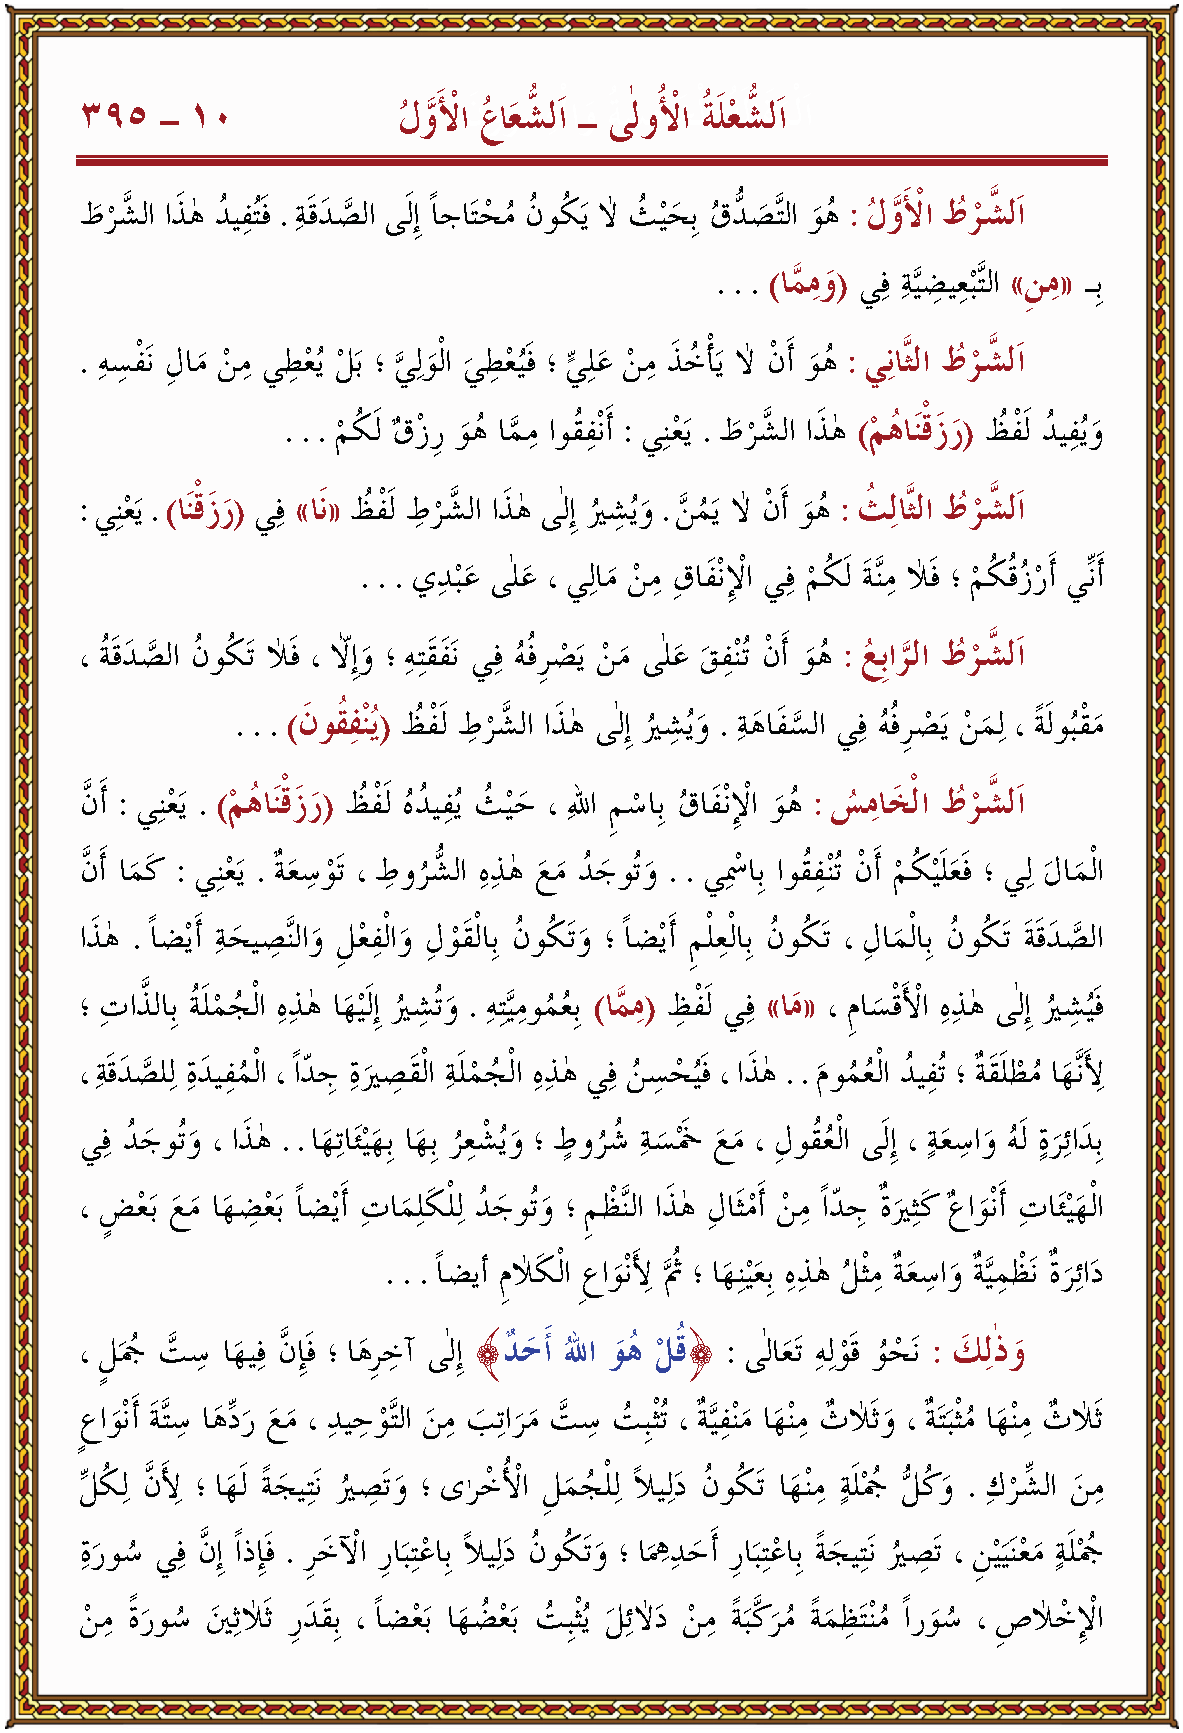 اَلشُّعْلَةُ الْأُولٰى – اَلشُّعَاعُ الْأَوَّلُ ١٠ – ٣٩٥
اَلشَّرْطُ الْأَوَّلُ : هُوَ التَّصَدُّقُ بِحَيْثُ لاٰ يَكُونُ مُحْتَاجاً إِلَى الصَّدَقَةِ . فَتُفِيدُ هٰذَا الشَّرْطَ
بِـ «مِنِ» التَّبْعِيضِيَّةِ فِي (وَمِمَّا) . . .
اَلشَّرْطُ الثَّانِي : هُوَ أَنْ لاٰ يَأْخُذَ مِنْ عَلِيٍّ ؛ فَيُعْطِيَ الْوَلِيَّ ؛ بَلْ يُعْطِي مِنْ مَالِ نَفْسِهِ .
وَيُفِيدُ لَفْظُ (رَزَقْنَاهُمْ) هٰذَا الشَّرْطَ . يَعْنِي : أَنْفِقُوا مِمَّا هُوَ رِزْقٌ لَكُمْ . . .
اَلشَّرْطُ الثَّالِثُ : هُوَ أَنْ لاٰ يَمُنَّ . وَيُشِيرُ إِلٰى هٰذَا الشَّرْطِ لَفْظُ «نَا» فِي (رَزَقْنَا) . يَعْنِي :
أَنِّي أَرْزُقُكُمْ ؛ فَلاٰ مِنَّةَ لَكُمْ فِي الْإِنْفَاقِ مِنْ مَالِي ، عَلٰى عَبْدِي . . .
اَلشَّرْطُ الرَّابِعُ : هُوَ أَنْ تُنْفِقَ عَلٰى مَنْ يَصْرِفُهُ فِي نَفَقَتِهِ ؛ وَإِلاّٰ ، فَلاٰ تَكُونُ الصَّدَقَةُ ،
مَقْبُولَةً ، لِمَنْ يَصْرِفُهُ فِي السَّفَاهَةِ . وَيُشِيرُ إِلٰى هٰذَا الشَّرْطِ لَفْظُ (يُنْفِقُونَ) . . .
اَلشَّرْطُ الْخَامِسُ : هُوَ الْإِنْفَاقُ بِاسْمِ اللهِ ، حَيْثُ يُفِيدُهُ لَفْظُ (رَزَقْنَاهُمْ) . يَعْنِي : أَنَّ
الْمَالَ لِي ؛ فَعَلَيْكُمْ أَنْ تُنْفِقُوا بِاسْمِي . . وَتُوجَدُ مَعَ هٰذِهِ الشُّرُوطِ ، تَوْسِعَةٌ . يَعْنِي : كَمَا أَنَّ
الصَّدَقَةَ تَكُونُ بِالْمَالِ ، تَكُونُ بِالْعِلْمِ أَيْضاً ؛ وَتَكُونُ بِالْقَوْلِ وَالْفِعْلِ وَالنَّصِيحَةِ أَيْضاً . هٰذَا
فَيُشِيرُ إِلٰى هٰذِهِ الْأَقْسَامِ ، «مَا» فِي لَفْظِ (مِمَّا) بِعُمُومِيَّتِهِ . وَتُشِيرُ إِلَيْهَا هٰذِهِ الْجُمْلَةُ بِالذَّاتِ ؛
لِأَنَّهَا مُطْلَقَةٌ ؛ تُفِيدُ الْعُمُومَ . . هٰذَا ، فَيُحْسِنُ فِي هٰذِهِ الْجُمْلَةِ الْقَصِيرَةِ جِدّاً ، الْمُفِيدَةِ لِلصَّدَقَةِ ،
بِدَائِرَةٍ لَهُ وَاسِعَةٍ ، إِلَى الْعُقُولِ ، مَعَ خَمْسَةِ شُرُوطٍ ؛ وَيُشْعِرُ بِهَا بِهَيْئَاتِهَا . . هٰذَا ، وَتُوجَدُ فِي
الْهَيْئَاتِ أَنْوَاعٌ كَثِيرَةٌ جِدّاً مِنْ أَمْثَالِ هٰذَا النَّظْمِ ؛ وَتُوجَدُ لِلْكَلِمَاتِ أَيْضاً بَعْضِهَا مَعَ بَعْضٍ ،
دَائِرَةٌ نَظْمِيَّةٌ وَاسِعَةٌ مِثْلُ هٰذِهِ بِعَيْنِهَا ؛ ثُمَّ لِأَنْوَاعِ الْكَلاٰمِ أيضاً . . .
وَذٰلِكَ : نَحْوُ قَوْلِهِ تَعَالٰى : ﴿قُلْ هُوَ اللهُ أَحَدٌ﴾ إِلٰى آخِرِهَا ؛ فَإِنَّ فِيهَا سِتَّ جُمَلٍ ،
ثَلاٰثٌ مِنْهَا مُثْبَتَةٌ ، وَثَلاٰثٌ مِنْهَا مَنْفِيَّةٌ ، تُثْبِتُ سِتَّ مَرَاتِبَ مِنَ التَّوْحِيدِ ، مَعَ رَدِّهَا سِتَّةَ أَنْوَاعٍ
مِنَ الشِّرْكِ . وَكُلُّ جُمْلَةٍ مِنْهَا تَكُونُ دَلِيلاً لِلْجُمَلِ الْأُخْرٰى ؛ وَتَصِيرُ نَتِيجَةً لَهَا ؛ لِأَنَّ لِكُلِّ
جُمْلَةٍ مَعْنَيَيْنِ ، تَصِيرُ نَتِيجَةً بِاعْتِبَارِ أَحَدِهِمَا ؛ وَتَكُونُ دَلِيلاً بِاعْتِبَارِ الْآخَرِ . فَإِذاً إِنَّ فِي سُورَةِ
الْإِخْلاٰصِ ، سُوَراً مُنْتَظِمَةً مُرَكَّبَةً مِنْ دَلاٰئِلَ يُثْبِتُ بَعْضُهَا بَعْضاً ، بِقَدَرِ ثَلاٰثِينَ سُورَةً مِنْ